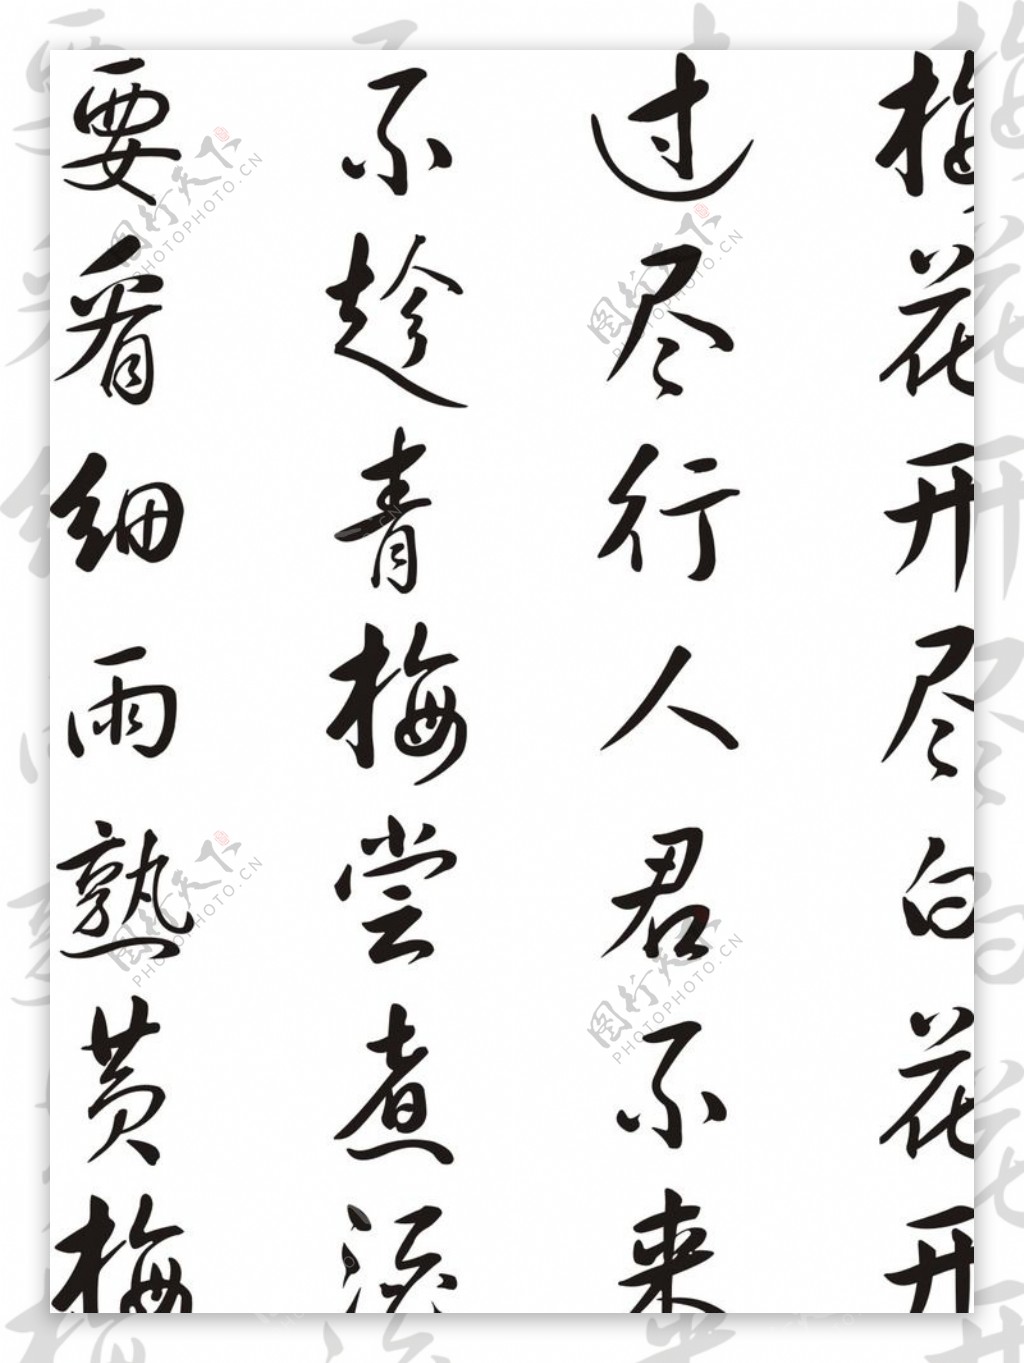 梅花开尽白花开
过尽行人君不来
不趁青梅尝煮酒
要看细雨熟黄梅
图行天下
PHOTOPHOTO.CN
图行天下
PHOTOPHOTO.CN
图行天下
PHOTOPHOTO.CN
图行天下
PHOTOPHOTO.CN